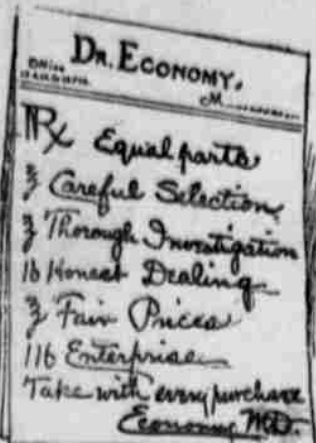 DR. ECONOMY,
OFFICE
M
Rx Equal parts
ʒ Careful Selection
ʒ Thorough Investigation
lb Honest Dealing
ʒ Fair Prices
1lb Enterprise
Take with every purchase
Economy M.D.